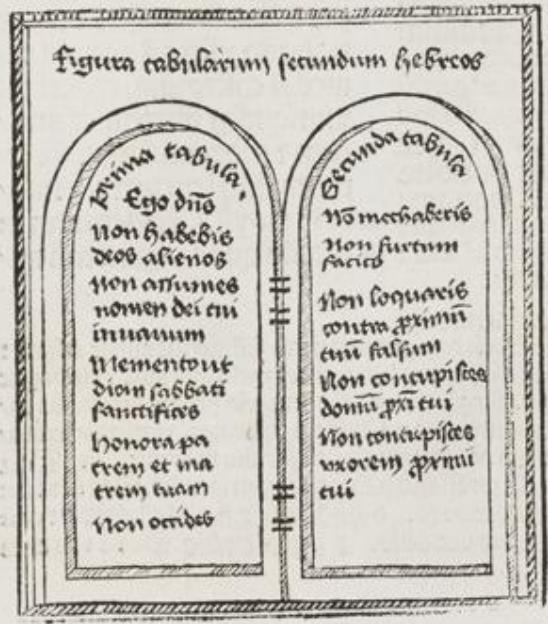 Figura tabularum secundum hebreos
prima tabula.
Ego dn̄s
Non habebis
deos alienos
Non assumes
nomen dei tui
in vanum
Memento ut
diem sabbati
sanctifices
Honora pa
trem et ma
trem tuam
Non occides
Secunda tabula
Nō mechaberis
Non furtum
facies
Non loquaris
contra ꝓximū
tuū falsum
Non concupisces
domū ꝓxi tui
Non concupisces
uxorem ꝓximi
tui